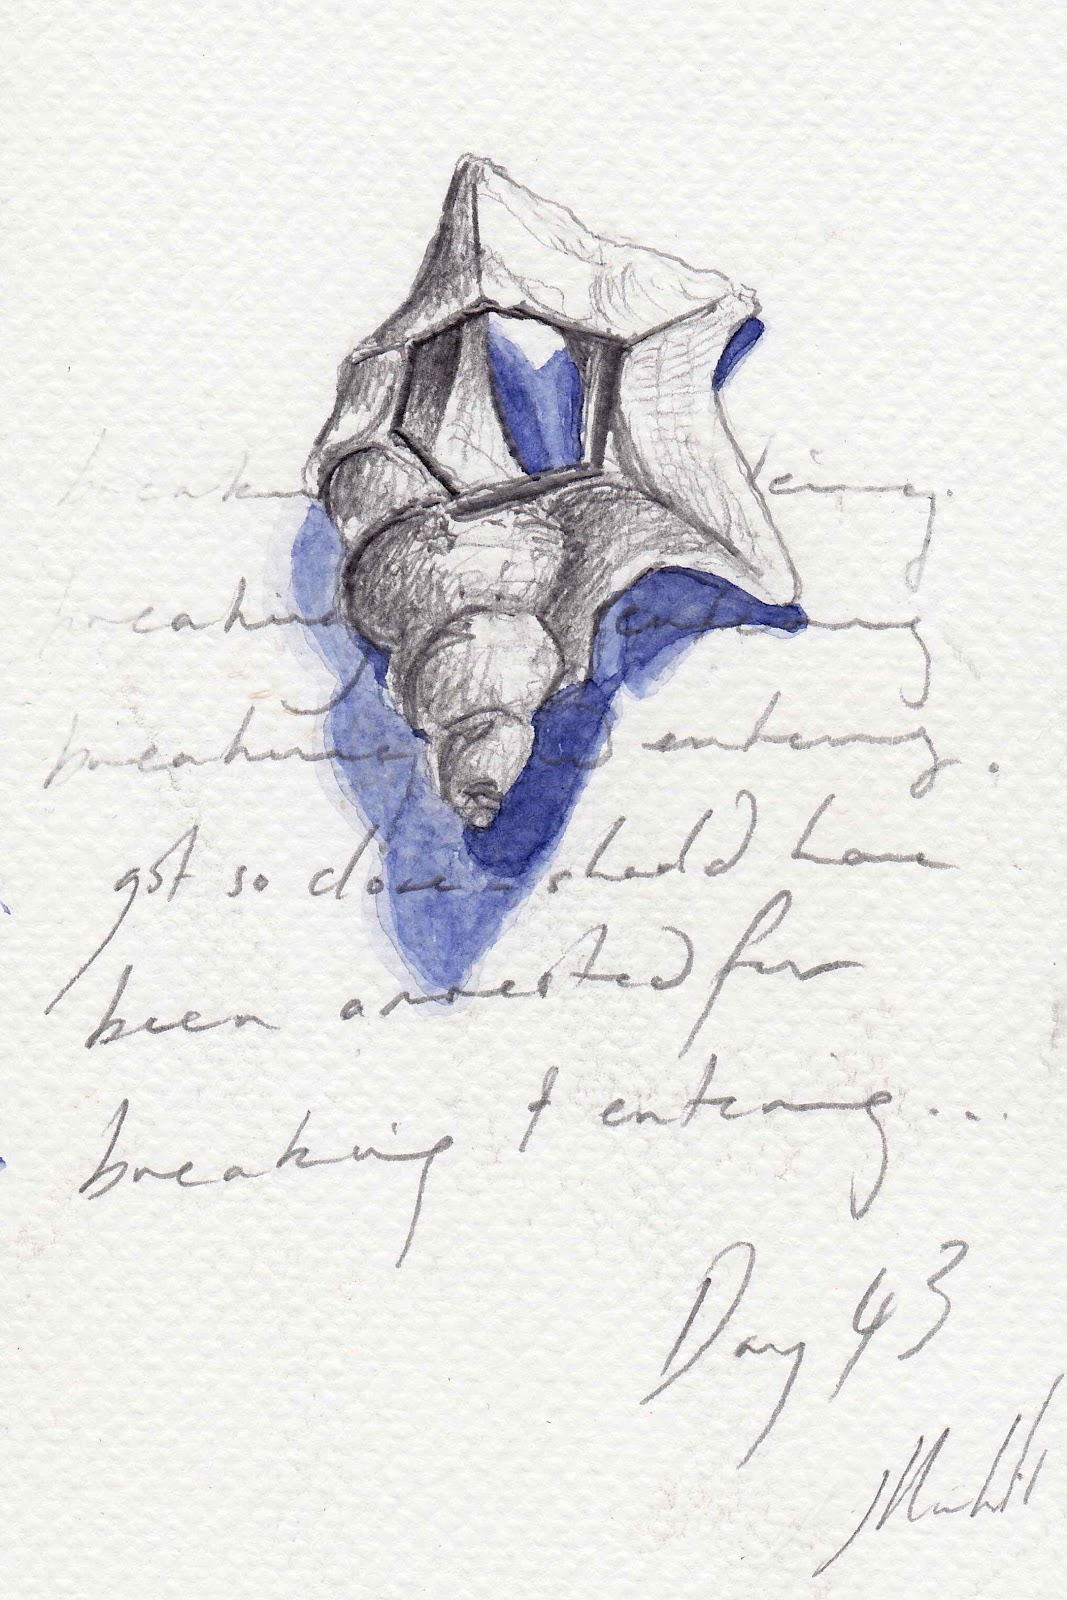 breaking entering.
breaking entering
breaking & entering.
got so close - should have
been arrested for
breaking & entering...
Day 43